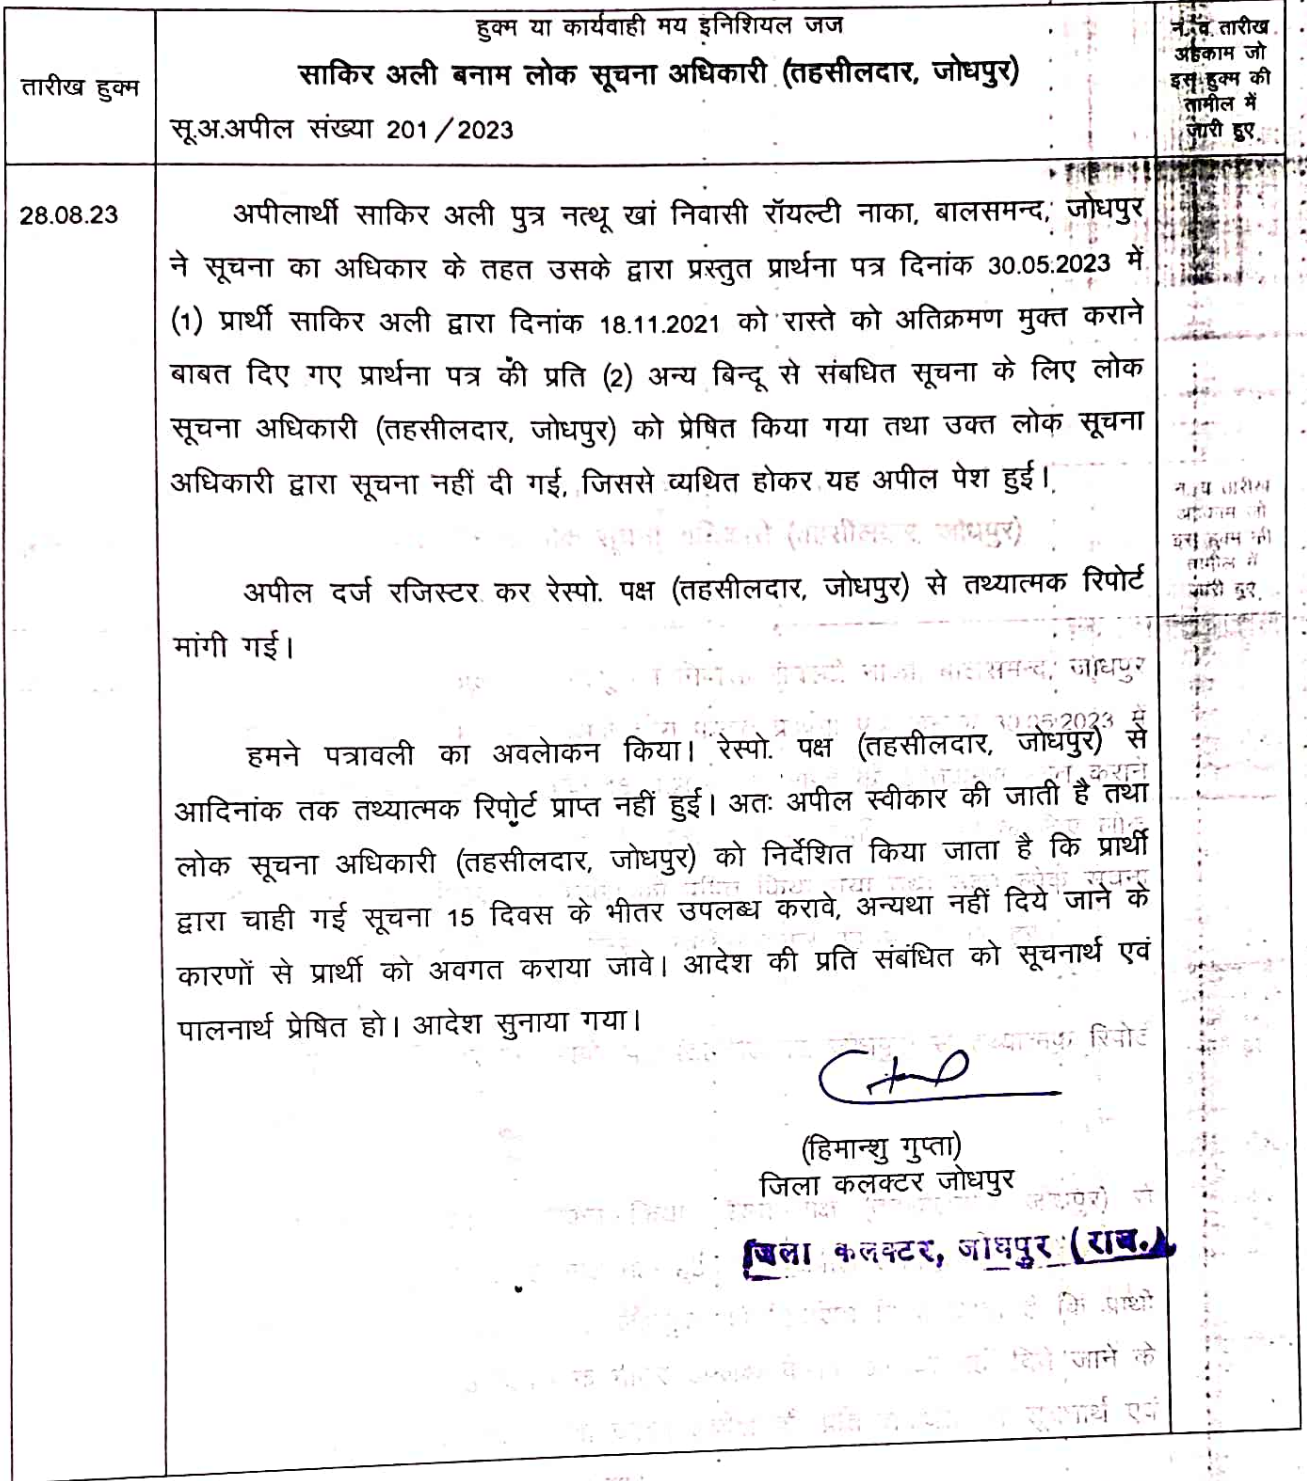 हुक्म या कार्यवाही मय इनिशियल जज
साकिर अली बनाम लोक सूचना अधिकारी (तहसीलदार, जोधपुर)
सू.अ.अपील संख्या 201/2023
तारीख हुक्म
न. व तारीख
अहकाम जो
इस हुक्म की
तामील में
जारी हुए
28.08.23
अपीलार्थी साकिर अली पुत्र नत्थू खां निवासी रॉयल्टी नाका, बालसमन्द, जोधपुर
ने सूचना का अधिकार के तहत उसके द्वारा प्रस्तुत प्रार्थना पत्र दिनांक 30.05.2023 में
(1) प्रार्थी साकिर अली द्वारा दिनांक 18.11.2021 को रास्ते को अतिक्रमण मुक्त कराने
बाबत दिए गए प्रार्थना पत्र की प्रति (2) अन्य बिन्दू से संबधित सूचना के लिए लोक
सूचना अधिकारी (तहसीलदार, जोधपुर) को प्रेषित किया गया तथा उक्त लोक सूचना
अधिकारी द्वारा सूचना नहीं दी गई, जिससे व्यथित होकर यह अपील पेश हुई।
अपील दर्ज रजिस्टर कर रेस्पो. पक्ष (तहसीलदार, जोधपुर) से तथ्यात्मक रिपोर्ट
मांगी गई।
हमने पत्रावली का अवलोकन किया। रेस्पो. पक्ष (तहसीलदार, जोधपुर) से
आदिनांक तक तथ्यात्मक रिपोर्ट प्राप्त नहीं हुई। अतः अपील स्वीकार की जाती है तथा
लोक सूचना अधिकारी (तहसीलदार, जोधपुर) को निर्देशित किया जाता है कि प्रार्थी
द्वारा चाही गई सूचना 15 दिवस के भीतर उपलब्ध करावे, अन्यथा नहीं दिये जाने के
कारणों से प्रार्थी को अवगत कराया जावे। आदेश की प्रति संबंधित को सूचनार्थ एवं
पालनार्थ प्रेषित हो। आदेश सुनाया गया।
(हिमान्शु गुप्ता)
जिला कलक्टर जोधपुर
जिला कलक्टर, जोधपुर (राज.)